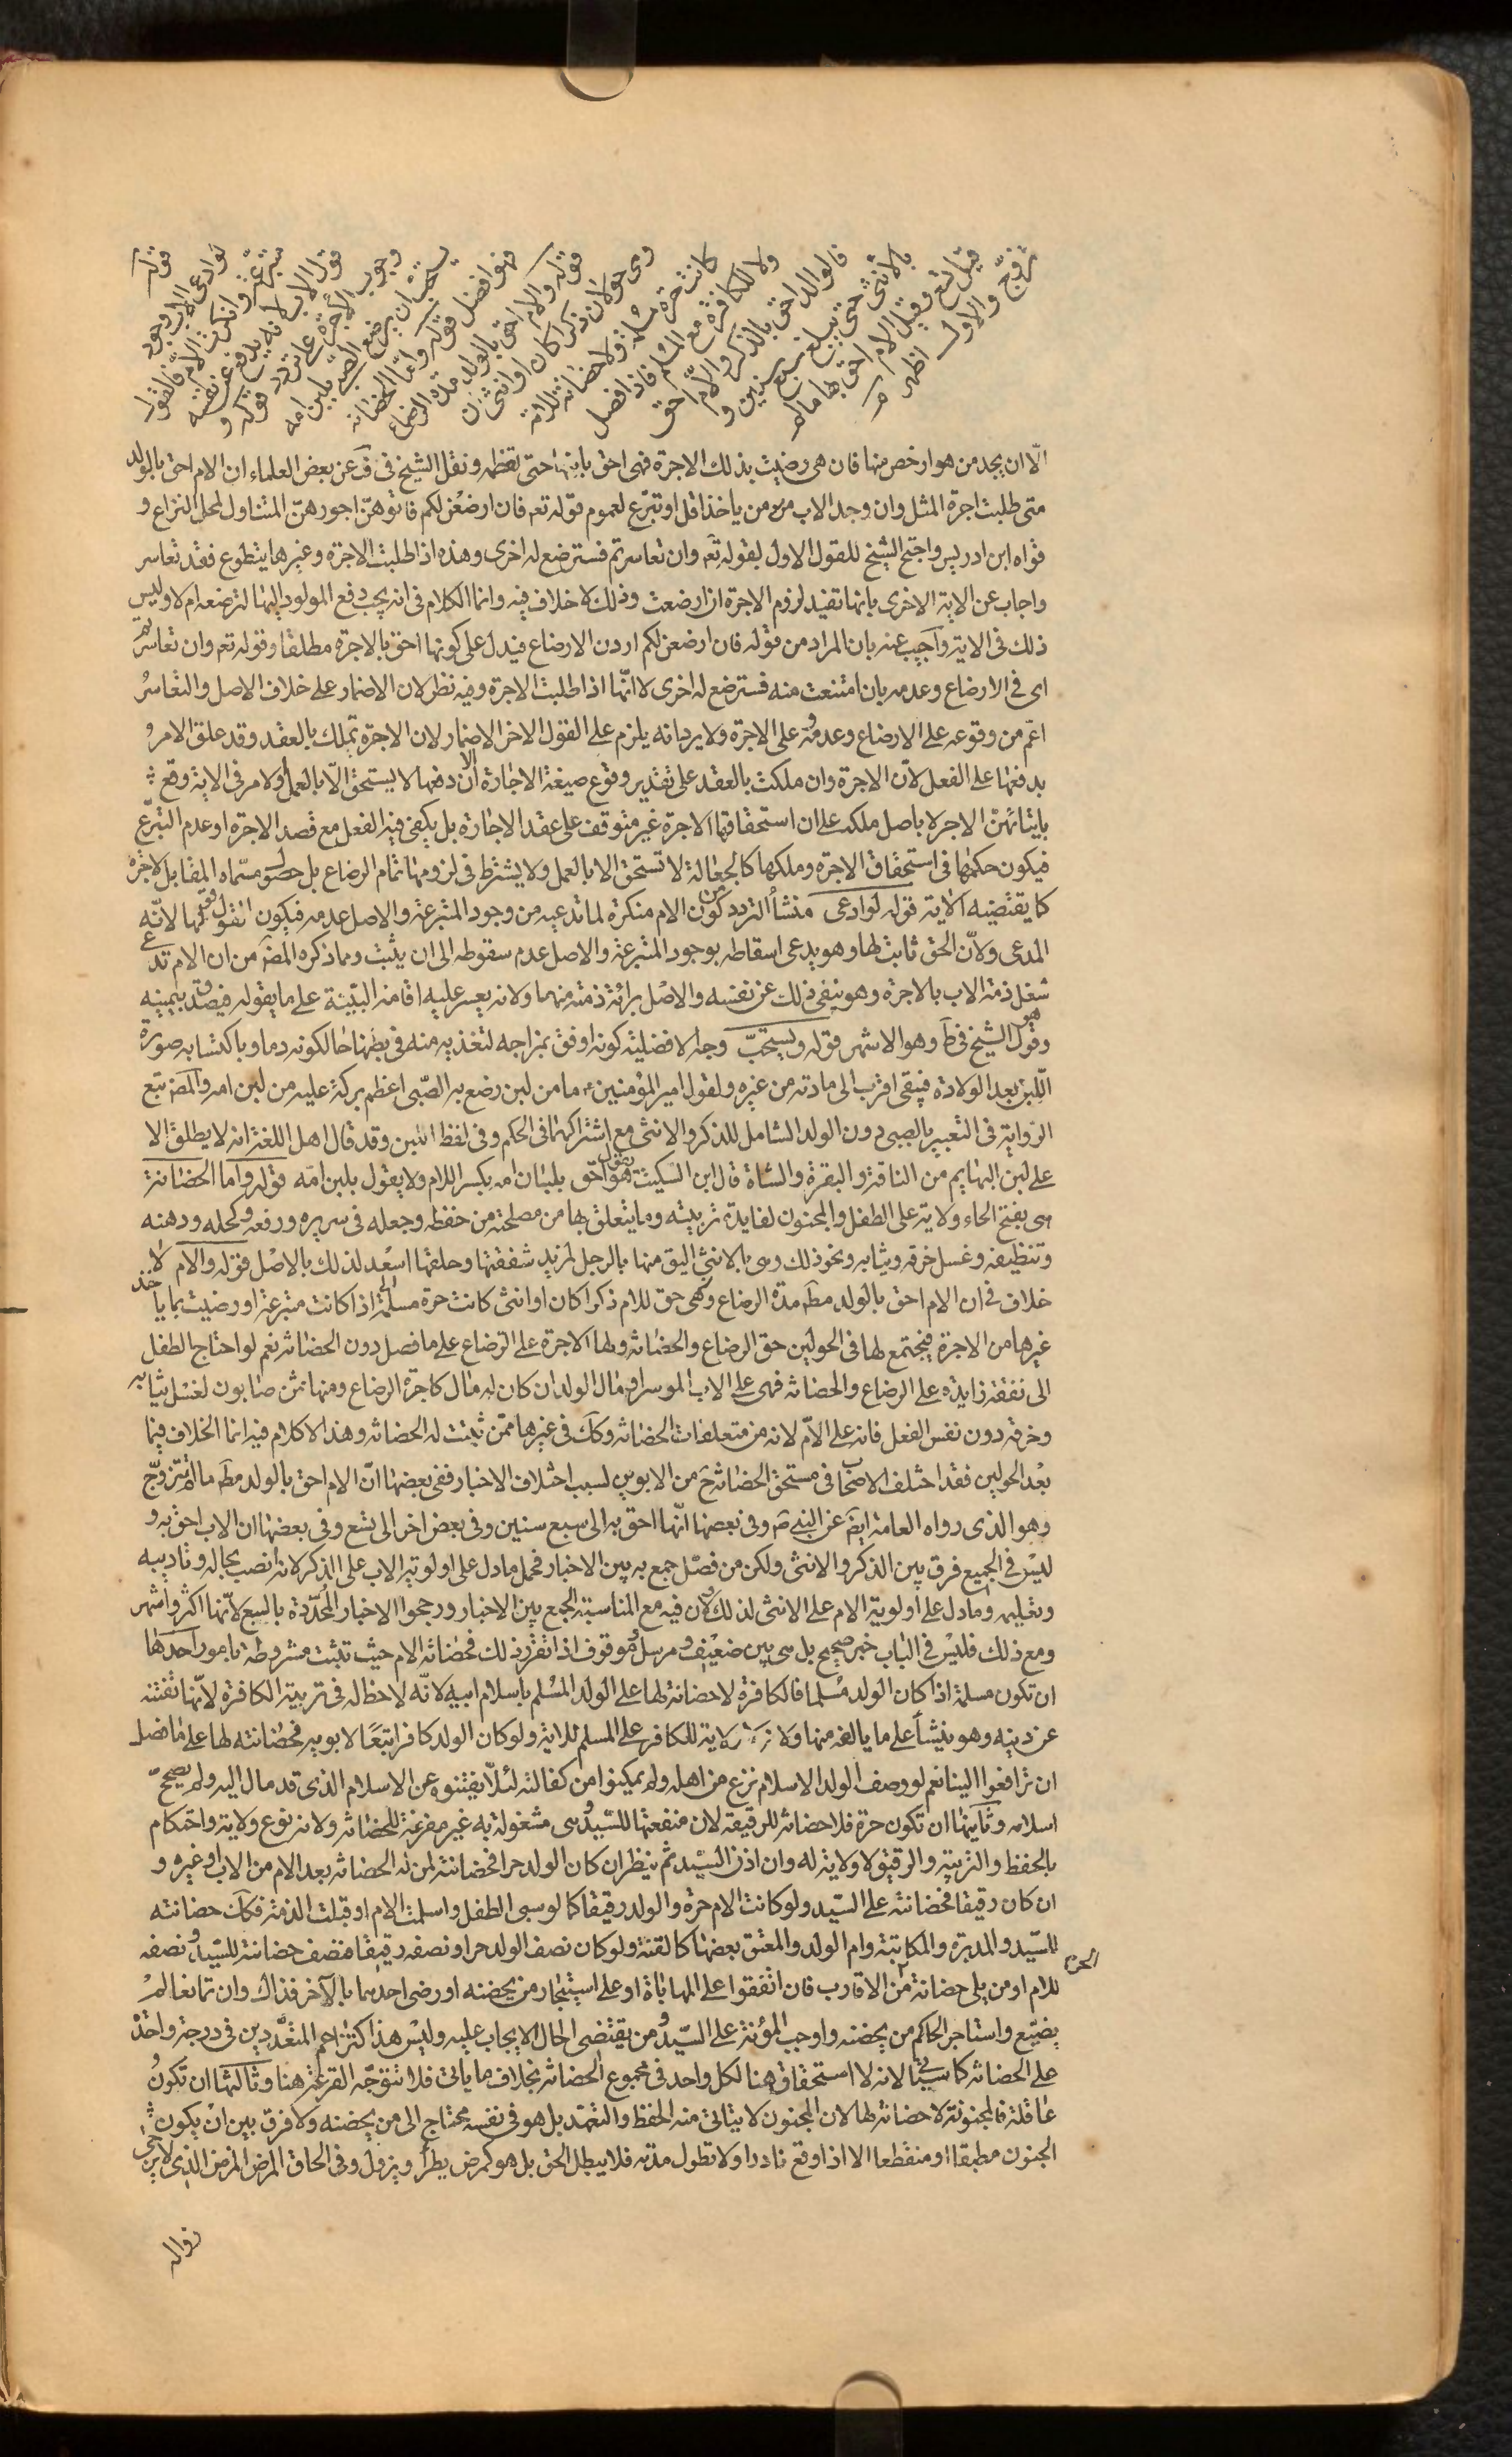 قوله
لو ادعى الاب وجود
متبرعة وانكرت الام فالقول
قول الاب لانه يدفع عن نفسه
وجوب الاجرة على تردد قوله و
يستحب ان يرضع الصبى بلبن امه
فهو افضل قوله واما الحضانة
قوله والام احق بالولد مدة الرضاع
وهى حولان ذكرا كان او انثى اذا
كانت حرة مسلمة ولا حضانة للامة
ولا للكافرة مع المسلم فاذا فصل
فالوالد احق بالذكر والام احق
بالانثى حتى تبلغ سبع سنين و
قيل تسع وقيل الام احق بها ما لم
تزوج والاول اظهر
الّا ان يجد من هو ارخص منها فان هى رضيت بذلك الاجرة فهى احق بابنها حتى تفطمه ونقل الشيخ فى ف عن بعض العلماء ان الام احق بالولد
متى طلبت اجرة المثل وان وجد الاب من ياخذ اقل او تبرّع لعموم قوله تعم فان ارضعن لكم فاتوهنّ اجورهنّ المتناول لمحل النزاع و
قواه ابن ادريس واحتج الشيخ للقول الاول بقوله تعم وان تعاسرتم فسترضع له اخرى وهذه اذا طلبت الاجرة وغيرها يتطوع فقد تعاسر
واجاب عن الاية الاخرى بانها تفيد لزوم الاجرة ان ارضعت وذلك لا خلاف فيه وانما الكلام فى انه يجب دفع المولود اليها لترضعه ام لا وليس
ذلك فى الاية واجيب عنه بان المراد من قوله فان ارضعن لكم اردن الارضاع فيدل على كونها احق بالاجرة مطلقا وقوله تعم وان تعاسرتم
اى فى الارضاع وعدمه بان امتنعت منه فسترضع له اخرى لا انّها اذا طلبت الاجرة وفيه نظر لان الاضمار على خلاف الاصل والتعاسر
اعّم من وقوعه على الارضاع وعدمه وعلى الاجرة ولا يرد انه يلزم على القول الاخر الاضمار لان الاجرة تملك بالعقد وقد علق الامر
بدفعها على الفعل لانّ الاجرة وان ملكت بالعقد على تقدير وقوع صيغة الاجارة الا ان دفعها لا يستحق الّا بالعمل والامر فى الاية وقع
بايتائهنّ الاجر لا باصل ملكه على ان استحقاقها الاجرة غير متوقف على عقد الاجارة بل يكفى فيه الفعل مع قصد الاجرة او عدم التبرّع
فيكون حكمها فى استحقاق الاجرة وملكها كالجعالة لا تستحق الا بالعمل ولا يشترط فى لزومها تمام الرضاع بل حصول مسمّاه المقابل لاجرة
كما يقتضيه الاية قوله لو ادعى منشأ التردد من كون الام منكرة لما تدعيه من وجود المتبرعة والاصل عدمه فيكون القول قولها لانّه
المدعى ولانّ الحق ثابت لها وهو يدعى اسقاطه بوجود المتبرعة والاصل عدم سقوطه الى ان يثبت ومما ذكره المص من ان الام تدعى
شغل ذمة الاب بالاجرة وهو ينفى ذلك عن نفسه والاصل برائة ذمته منهما ولانه يعسر عليه اقامة البيّنة على ما يقوله فيصدق بيمينه
وهو قول الشيخ فى ط وهو الاشهر قوله ويستحبّ وجه الافضلية كونه اوفق بمزاجه لتغذيه منه فى بطنها حالكونه دما وباكتسابه صورة
اللبن بعد الولادة فيبقى اقرب الى مادته من غيره ولقول امير المؤمنين ع ما من لبن رضع به الصّبى اعظم بركة عليه من لبن امه والمص تبع
الرواية فى التعبير بالصبى دون الولد الشامل للذكر والانثى مع اشتراكهما فى الحكم وفى لفظ اللبن وقد قال اهل اللغة انه لا يطلق الا
على لبن البهايم من الناقة والبقرة والشاة قال ابن السكيت يقول هو احق بلبان امه بكسر اللام ولا يقول بلبن امّه قوله واما الحضانة
هى بفتح الحاء ولاية على الطفل والمجنون لفايدة تربيته وما يتعلق بها من مصلحته من حفظه وجعله فى سريره ورفعه وكحله ودهنه
وتنظيفه وغسل خرقه وثيابه ونحو ذلك وهى بالانثى اليق منها بالرجل لمزيد شفقتها وخلقها المعد لذلك بالاصل قوله والام لا
خلاف فى ان الام احق بالولد مط مدة الرضاع وهى حق للام ذكرا كان او انثى كانت حرة مسلمة اذا كانت متبرعة او رضيت بما ياخذ
غيرها من الاجرة فيجتمع لها فى الحولين حق الرضاع والحضانة ولها الاجرة على الرضاع على ما فصل دون الحضانة نعم لو احتاج الطفل
الى نفقة زايدة على الرضاع والحضانة فهى على الاب الموسر او مال الولد ان كان له مال كاجرة الرضاع ومنها ثمن صابون لغسل ثيابه
وخرقه دون نفس الفعل فانه على الامّ لانه من متعلقات الحضانة وكك فى غيرها ممّن ثبتت له الحضانة وهذا لا كلام فيه انما الخلاف فيما
بعد الحولين فقد اختلف الاصحاب فى مستحق الحضانة ح من الابوين لسبب اختلاف الاخبار ففى بعضها انّ الام احق بالولد مط ما لم تتزوّج
وهو الذى رواه العامة ايض عن النبى ص وفى بعضها انّها احق به الى سبع سنين وفى بعض اخر الى تسع وفى بعضها ان الاب احق به و
ليس فى الجميع فرق بين الذكر والانثى ولكن من فصل جمع به بين الاخبار فحمل ما دل على اولوية الاب على الذكر لانه انصب بحاله وتاديبه
وتعليمه وما دل على اولوية الام على الانثى لذلك ولان فيه مع المناسبة الجمع بين الاخبار ورجحوا الاخبار المحدّدة بالسبع لانّها اكثر واشهر
ومع ذلك فليس فى الباب خبر صحيح بل هى بين ضعيف ومرسل وموقوف اذا تقرر ذلك فحضانة الام حيث تثبت مشروطة بامور احدها
ان تكون مسلمة اذا كان الولد مسلما فالكافرة لا حضانة لها على الولد المسلم باسلام ابيه لانّه لاحظ له فى تربية الكافرة لانّها تفتنه
عن دينه وهو ينشأ على ما يالفه منها ولانه لا ولاية للكافر على المسلم للاية ولو كان الولد كافرا تبعًا لابويه فحضانته لها على ما فصل
ان ترافعوا الينا نعم لو وصف الولد الاسلام نزع من اهله ولم يمكنوا من كفالته لئلّا يفتنوه عن الاسلام الذى قد مال اليه ولم يصحّ
اسلامه وثانيها ان تكون حرة فلا حضانة للرقيقة لان منفعتها للسّيد وهى مشغولة به غير مفرغة للحضانة ولانه نوع ولاية واحتكام
بالحفظ والتربية والرقيق لا ولاية له وان اذن السّيد ثم ينظر ان كان الولد حرا فحضانته لمن له الحضانة بعد الام من الاب او غيره و
ان كان رقيقا فحضانته على السّيد ولو كانت الام حرة والولد رقيقا كما لو سبى الطفل واسلمت الام او قبلت الذمة فكك حضانته
للسّيد والمدبرة والمكاتبة وام الولد والمعتق بعضها كالقنة ولو كان نصف الولد حرا ونصفه رقيقا فنصف حضانته للسّيد ونصفه
الحرة
للام او من يلى حضانة من الاقارب فان اتفقوا على المهاياة او على استيجار من يحضنه او رضى احدهما بالآخر فذاك وان تمانعا لم
يضيّع واستاجر الحاكم من يحضنه واوجب المؤنة على السّيد ومن يقتضى الحال الايجاب عليه وليس هذا كتزاحم المتعّددين فى درجة واحدة
على الحضانة كما سيأتى لانه لا استحقاق هنا لكل واحد فى مجموع الحضانة بخلاف ما ياتى فلا تتوجّه القرعة هنا وثالثها ان تكون
عاقلة فالمجنونة لا حضانة لها لان المجنون لا يتاتى منه الحفظ والتعهد بل هو فى نفسه محتاج الى من يحضنه ولا فرق بين ان يكون
الجنون مطبقا او منقطعا الا اذا وقع نادرا ولا تطول مدته فلا يبطل الحق بل هو كمرض يطرأ ويزول وفى الحاق المرض المزمن الذى لا يرجى
زواله